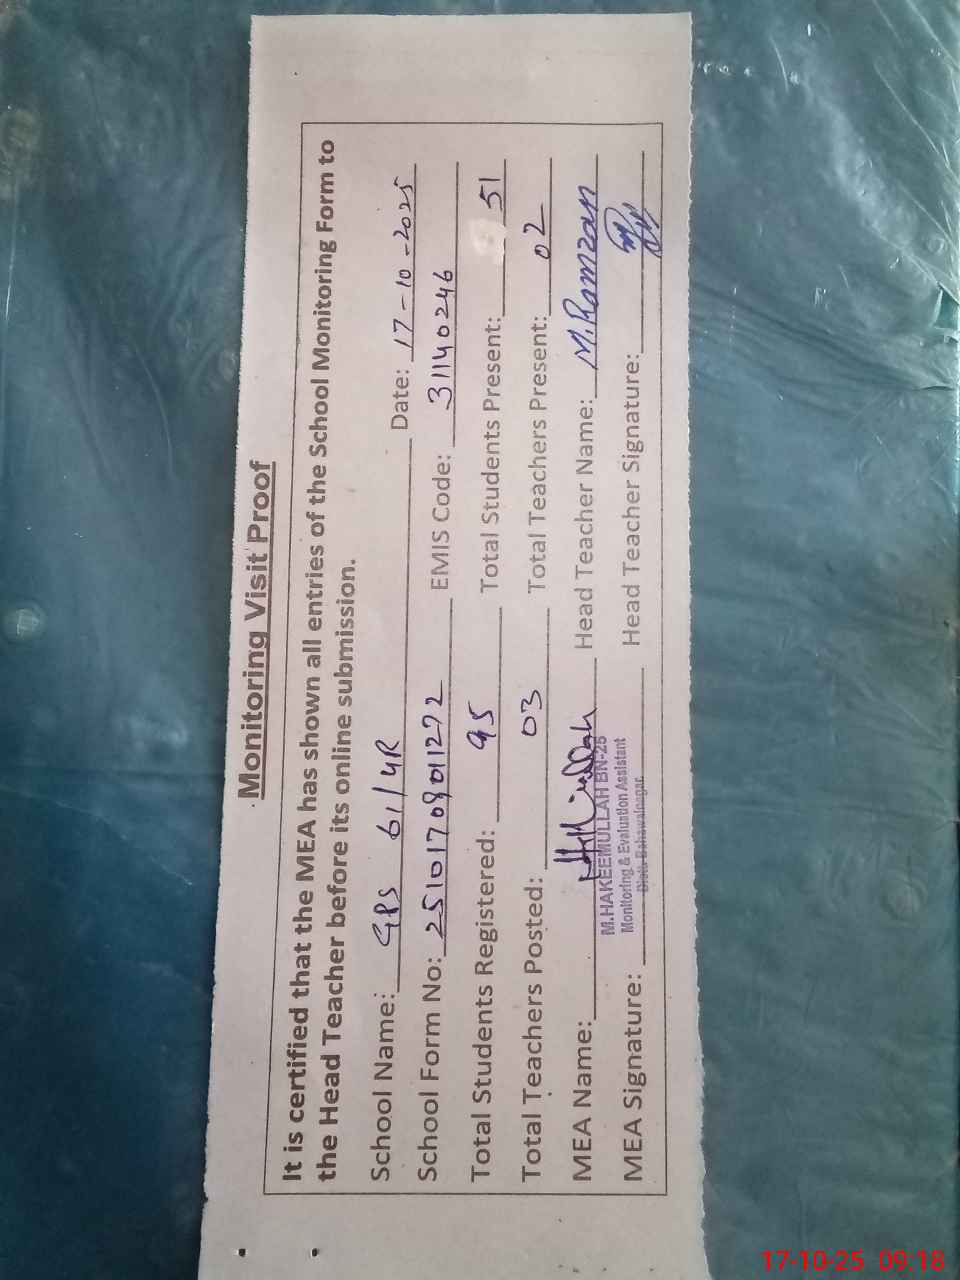 Monitoring Visit Proof
It is certified that the MEA has shown all entries of the School Monitoring Form to
the Head Teacher before its online submission.
School Name: GPS 61/4R Date: 17-10-2025
School Form No: 2510170901127 2 EMIS Code: 31140246
Total Students Registered: 95 Total Students Present: 51
Total Teachers Posted: 03 Total Teachers Present: 02
MEA Name: Head Teacher Name: M.Ramzan
M.HAKEEMULLAH BN-25
Monitoring & Evaluation Assistant
Distt. Bahawalnagar
MEA Signature: Head Teacher Signature:
17-10-25 09:18